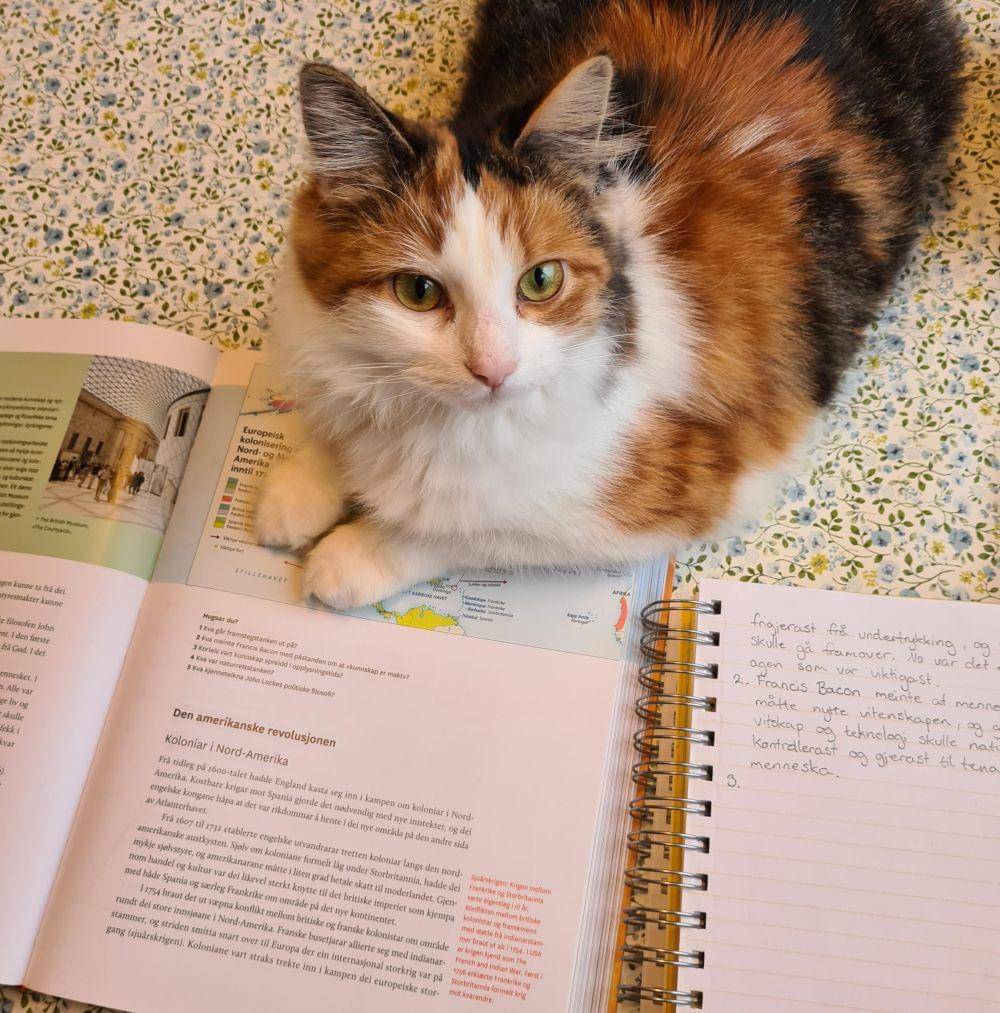 moderne kunnskap og nyt-
• The British Museum,
«The Courtyard».
gen kunne ta frå dei.
styresmakter kunne
e filosofen John
nt. I den første
frå Gud. I det
ennesket. I
n. Alle var
ge liv og
t skulle
fekk i
kvar
Europeisk
kolonisering
Nord- og
Amerika
inntil
STILLEHAVET
Guadeloupe Frankrike
Martinique Frankrike
Barbados Storbritannia
AFRIKA
Kapp Verde
Portugal
Hugsar du?
1 Kva går framstegstanken ut på?
2 Kva meinte Francis Bacon med påstanden om at «kunnskap er makt»?
3 Korleis vart kunnskap spreidd i opplysningstida?
4 Kva var naturrettstanken?
5 Kva kjenneteikna John Lockes politiske filosofi?
Den amerikanske revolusjonen
Koloniar i Nord-Amerika
Frå tidleg på 1600-talet hadde England kasta seg inn i kampen om koloniar i Nord-
Amerika. Kostbare krigar mot Spania gjorde det nødvendig med nye inntekter, og dei
engelske kongane håpa at det var rikdommar å hente i dei nye områda på den andre sida
av Atlanterhavet.
Frå 1607 til 1732 etablerte engelske utvandrarar tretten koloniar langs den nord-
amerikanske austkysten. Sjølv om koloniane formelt låg under Storbritannia, hadde dei
mykje sjølvstyre, og amerikanarane måtte i liten grad betale skatt til moderlandet. Gjen-
nom handel og kultur var dei likevel sterkt knytte til det britiske imperiet som kjempa
med både Spania og særleg Frankrike om område på det nye kontinentet.
I 1754 braut det ut væpna konflikt mellom britiske og franske kolonistar om område
rundt dei store innsjøane i Nord-Amerika. Franske busetjarar allierte seg med indianar-
stammer, og striden smitta snart over til Europa der ein internasjonal storkrig var på
gang (sjuårskrigen). Koloniane vart straks trekte inn i kampen dei europeiske stor-
Sjuårskrigen: Krigen mellom
Frankrike og Storbritannia
varte eigentleg i ni år.
Konflikten mellom britiske
kolonistar og franskmenn
med støtte frå indianarstam-
mer braut ut alt i 1754. I USA
er krigen kjend som The
French and Indian War. Først i
1756 erklærte Frankrike og
Storbritannia formelt krig
mot kvarandre.
frigjerast frå undertrykking, og
skulle gå framover. No var det
agen som var viktigast.
2. Francis Bacon meinte at menne
måtte nytte vitenskapen, og
vitskap og teknologi skulle nat
kontrollerast og gjerast til tena
menneska.
3.